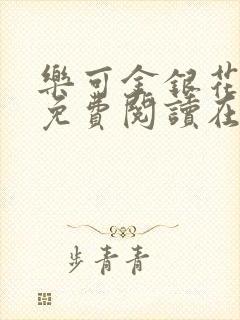 樂可金銀花
免費閱讀在
步青青